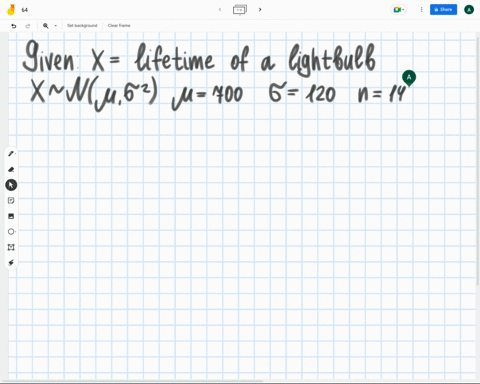 64
Set background Clear frame
Share
A
Given: X = lifetime of a lightbulb
X ~ N(μ, σ²) μ = 700 σ = 120 n = 14
A